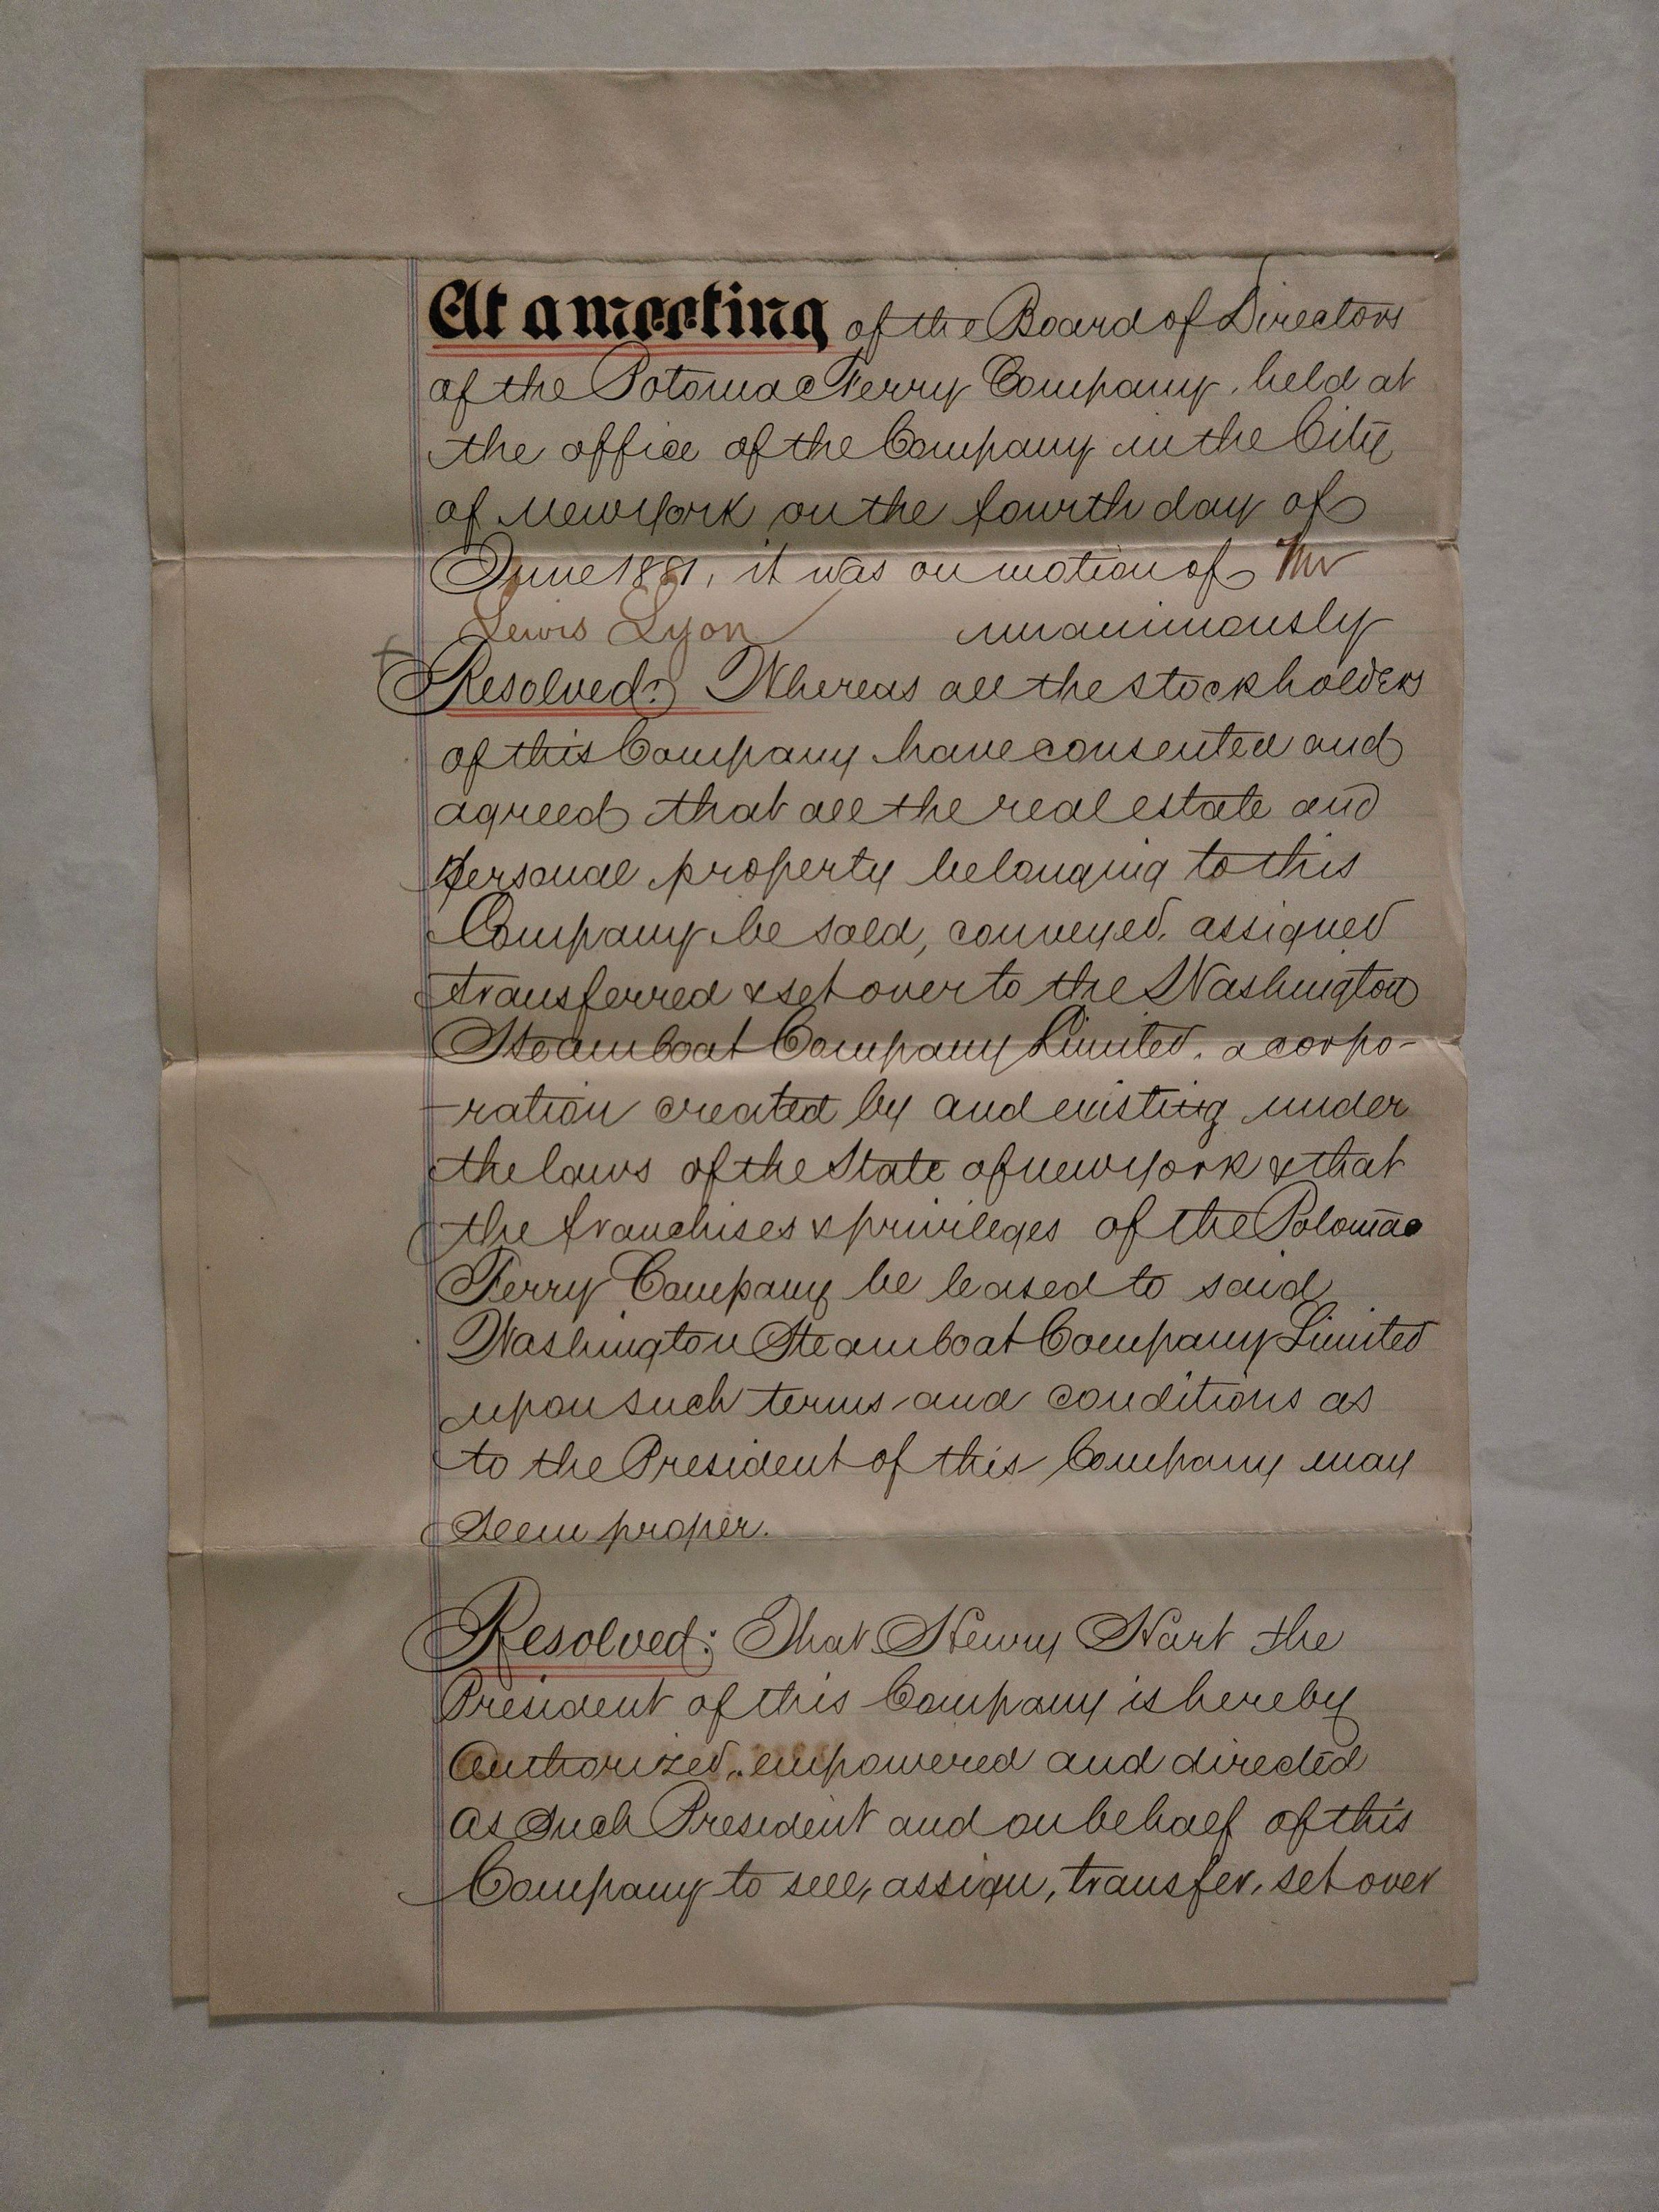 At a meeting of the Board of Directors
of the Potomac Ferry Company, held at
the office of the Company in the City
of New York on the fourth day of
June 1881, it was on motion of Mr
Lewis Lyon unanimously
Resolved: Whereas all the stockholders
of this Company have consented and
agreed that all the real estate and
personal property belonging to this
Company be sold, conveyed, assigned
transferred & set over to the Washington
Steamboat Company Limited, a corpo-
-ration created by and existing under
the laws of the State of New York & that
the franchises & privileges of the Potomac
Ferry Company be leased to said
Washington Steamboat Company Limited
upon such terms and conditions as
to the President of this Company may
seem proper.
Resolved: That Henry Hart the
President of this Company is hereby
authorized, empowered and directed
as such President and on behalf of this
Company to sell, assign, transfer, set over